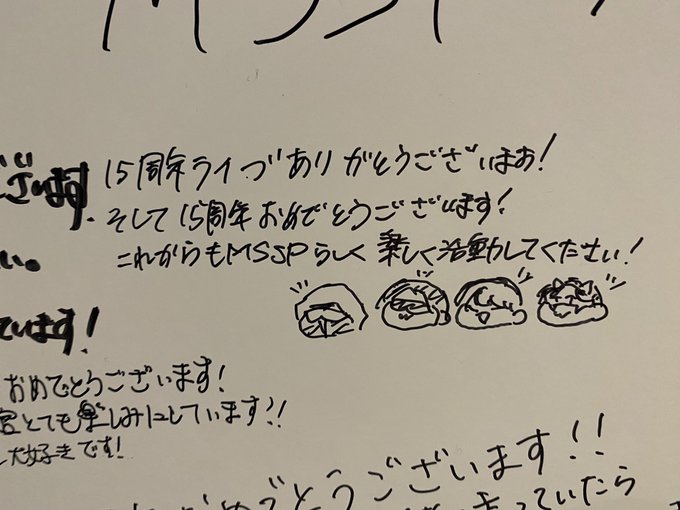 15周年ライヴありがとうございます!
ざいます
そして15周年おめでとうございます!
これからもMSSPらしく楽しく活動してください!
い。
ています!
おめでとうございます!
とても楽しみにしています?!
大好きです!
おめでとうございます!!
っていたら